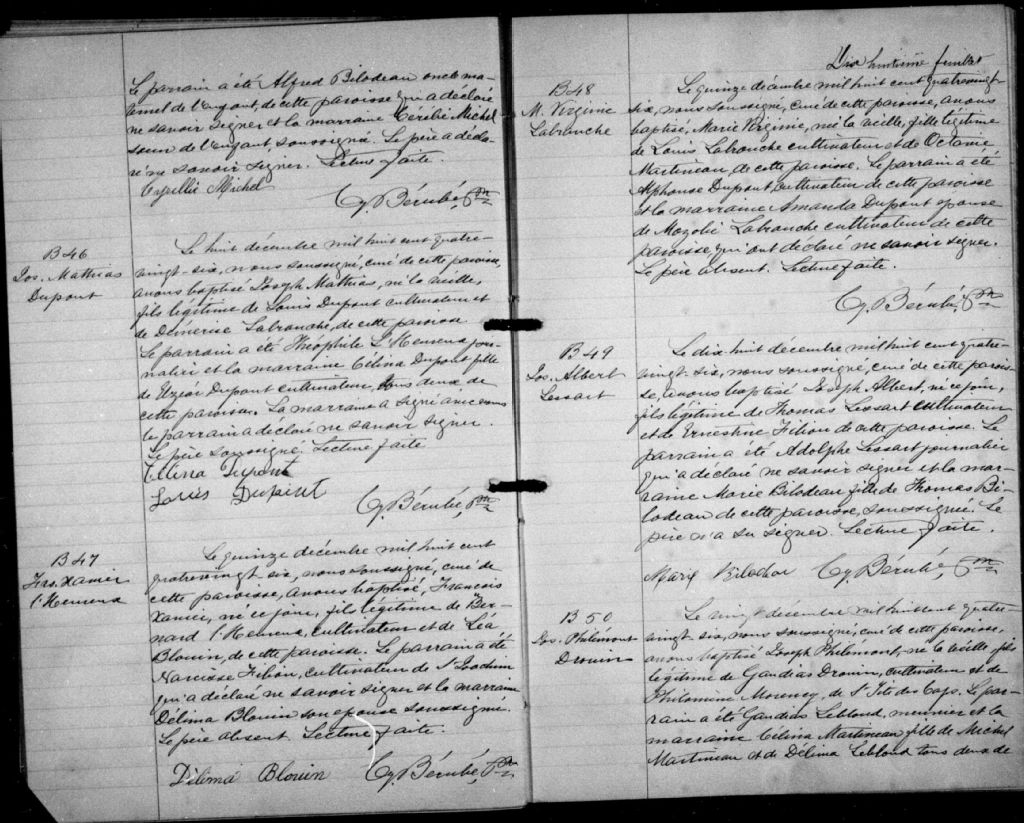 Le parrain a été Alfred Bilodeau oncle ma-
ternel de l'enfant, de cette paroisse qui a déclaré
ne savoir signer et la marraine Michel
soeur de l'enfant soussigné. Le père a décla-
ré ne savoir signer. Lecture faite.
Michel
Bérubé, Ptre
B 46
Jos. Mathias
Dupont
Le huit décembre mil huit cent quatre-
vingt-six, nous soussigné, curé de cette paroisse,
avons baptisé Joseph Mathias, né la veille,
fils légitime de Louis Dupont cultivateur et
de Démerise Labranche, de cette paroisse
Le parrain a été Théophile L'Heureux jour-
nalier et la marraine Célina Dupont fille
de Uzéar Dupont cultivateur, tous deux de
cette paroisse. La marraine a signé avec nous
le parrain a déclaré ne savoir signer.
Le père soussigné. Lecture faite
Célina Dupont
Louis Dupont
Bérubé, Ptre
B 47
Frs. Xavier
l'Heureux
Le quinze décembre mil huit cent
quatrevingt-six, nous soussigné, curé de
cette paroisse, avons baptisé, François
Xavier, né ce jour, fils légitime de Ber-
nard l'Heureux, cultivateur et de Léa
Blouin, de cette paroisse. Le parrain a été
Narcisse Filion, cultivateur de St Joachim
qui a déclaré ne savoir signer et la marraine
Délima Blouin son épouse soussigné.
Le père absent. Lecture faite.
Délima Blouin
Bérubé, Ptre
Dix huitième feuillet
B 48
M. Virginie
Labranche
Le quinze décembre mil huit cent quatrevingt
six, nous soussigné, curé de cette paroisse, avons
baptisé, Marie Virginie, née la veille, fille légitime
de Louis Labranche cultivateur et de Octavie
Martineau, de cette paroisse. Le parrain a été
Alphonse Dupont, cultivateur de cette paroisse
et la marraine Amanda Dupont épouse
de Labranche cultivateur de cette
paroisse, qui ont déclaré ne savoir signer.
Le père absent. Lecture faite.
Bérubé, Ptre
B 49
Jos. Albert
Lessart
Le dix huit décembre mil huit cent quatre-
vingt-six, nous soussigné, curé de cette parois-
se, avons baptisé Joseph Albert, né ce jour,
fils légitime de Thomas Lessart cultivateur
et de Ernestine Filion de cette paroisse. Le
parrain a été Adolphe Lessart journalier
qui a déclaré ne savoir signer et la mar-
raine Marie Bilodeau fille de Thomas Bi-
lodeau de cette paroisse, soussignée. Le
père n'a su signer. Lecture faite.
Marie
Bérubé, Ptre
B 50
Jos. Philémont
Drouin
Le vingt décembre mil huit cent quatre-
vingt-six, nous soussigné, curé de cette paroisse,
avons baptisé Joseph Philemont, né la veille, fils
légitime de Gaudias Drouin, cultivateur et de
Philomine Morency, de St Tite des Caps. Le par-
rain a été Gaudias Leblond, meunier et la
marraine Célina Martineau, fille de Michel
Martineau et de Délima Leblond tous deux de